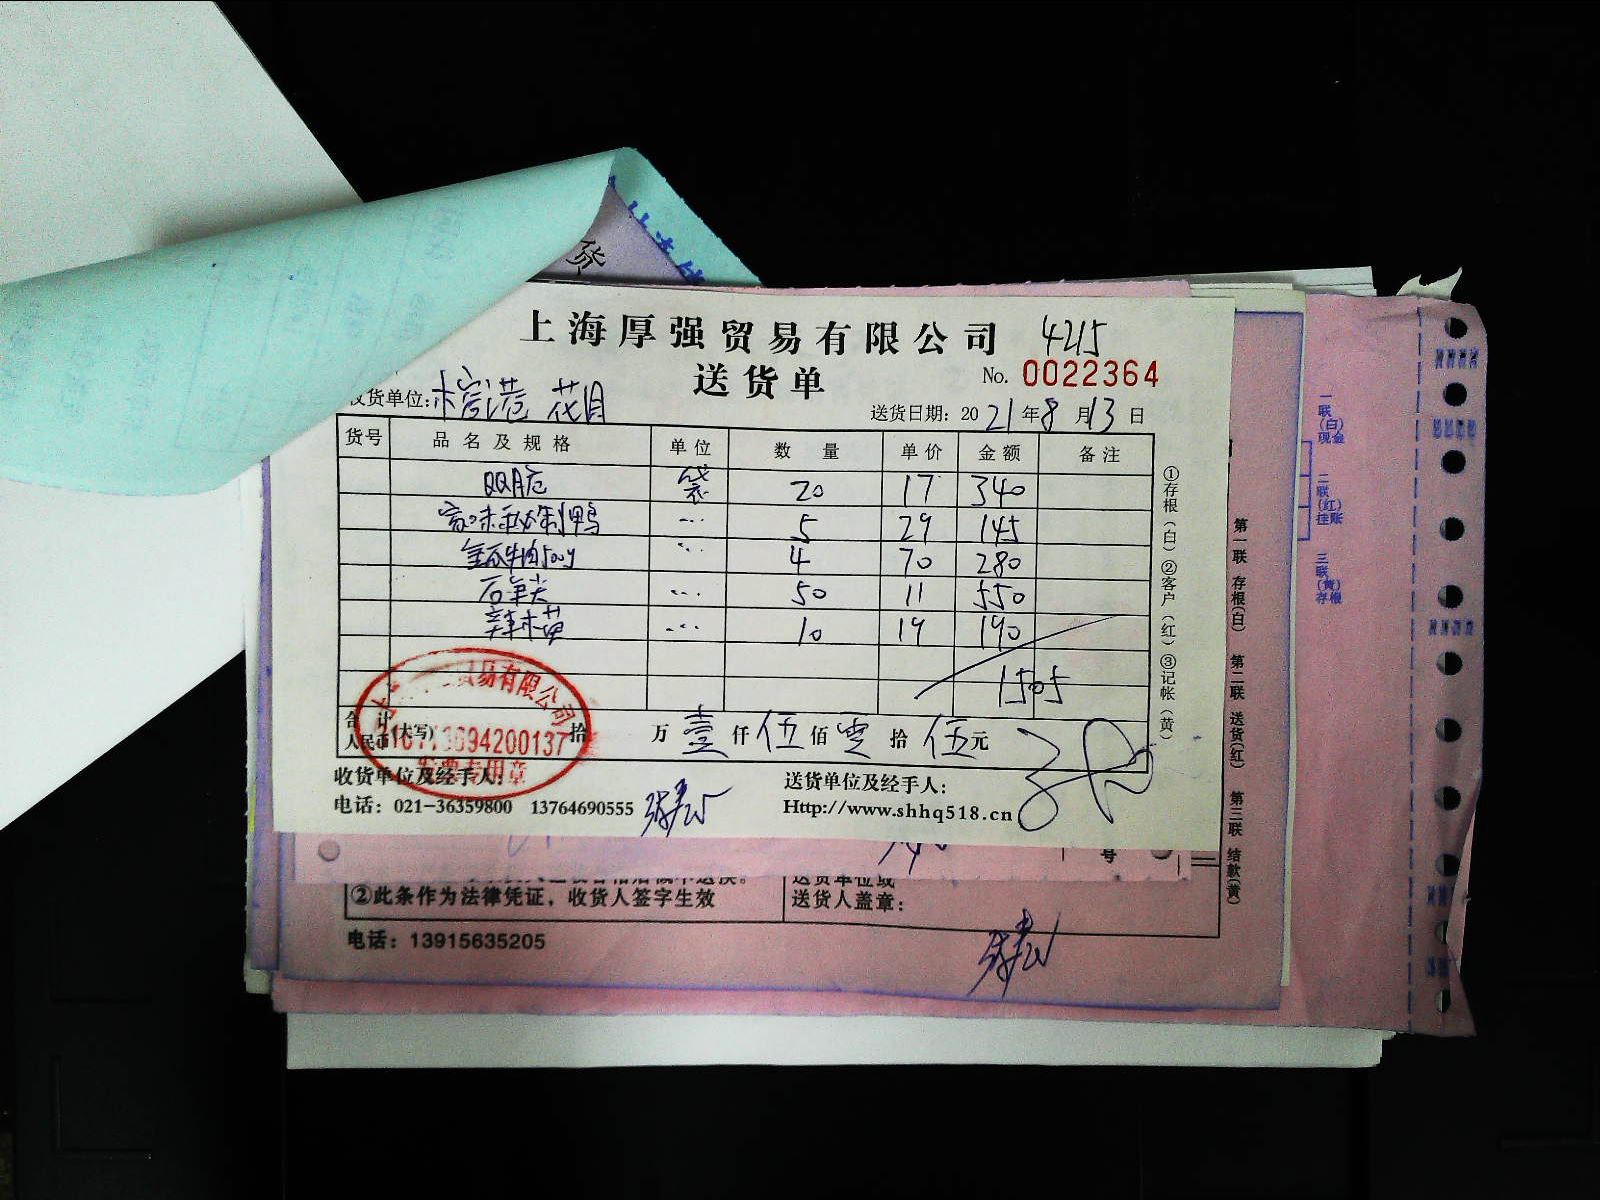 货
上海厚强贸易有限公司 4215
送货单 No. 0022364
收货单位: 花月
送货日期: 2021年8月13日
货号 品名及规格 单位 数量 单价 金额 备注
QQ 袋 20 17 340
秘制鸭 ... 5 29 145
牛肉500g ... 4 70 280
... 50 11 550
辣 ... 10 19 190
1505
合计 人民币(大写) 拾 万 壹 仟 伍 佰 零 拾 伍 元
贸易有限公司
发票专用章
收货单位及经手人:
送货单位及经手人:
电话: 021-36359800 13764690555
Http://www.shhq518.cn
①存根(白)②客户(红)③记帐(黄)
号
送货单位或
②此条作为法律凭证，收货人签字生效
送货人盖章:
电话: 13915635205
第一联 存根(白) 第二联 送货(红) 第三联 结款(黄)
一联(白)现金
二联(红)挂账
三联(黄)存根